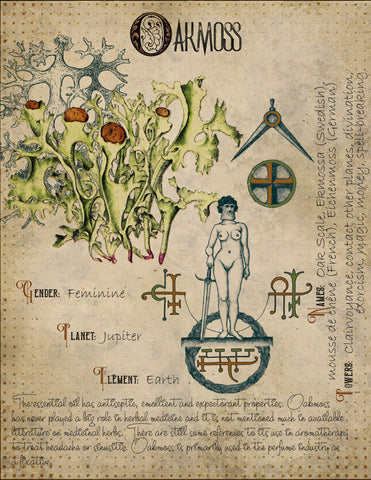 OAKMOSS
GENDER: Feminine
PLANET: Jupiter
ELEMENT: Earth
NAMES: Oak Scale, Ekmossa (Swedish)
mousse de chêne (French), Eichenmoss (German)
POWERS: Clairvoyance, contact other planes, divination,
exorcism, magic, money, spell-breaking
The essential oil has antiseptic, emollient and expectorant properties. Oakmoss
has never played a big role in herbal medicine and it is not mentioned much in available
literature on medicinal herbs. There are still some references to its use in aromatherapy
to treat headache or sinusitis. Oakmoss is primarily used in the perfume industry as
a fixative.